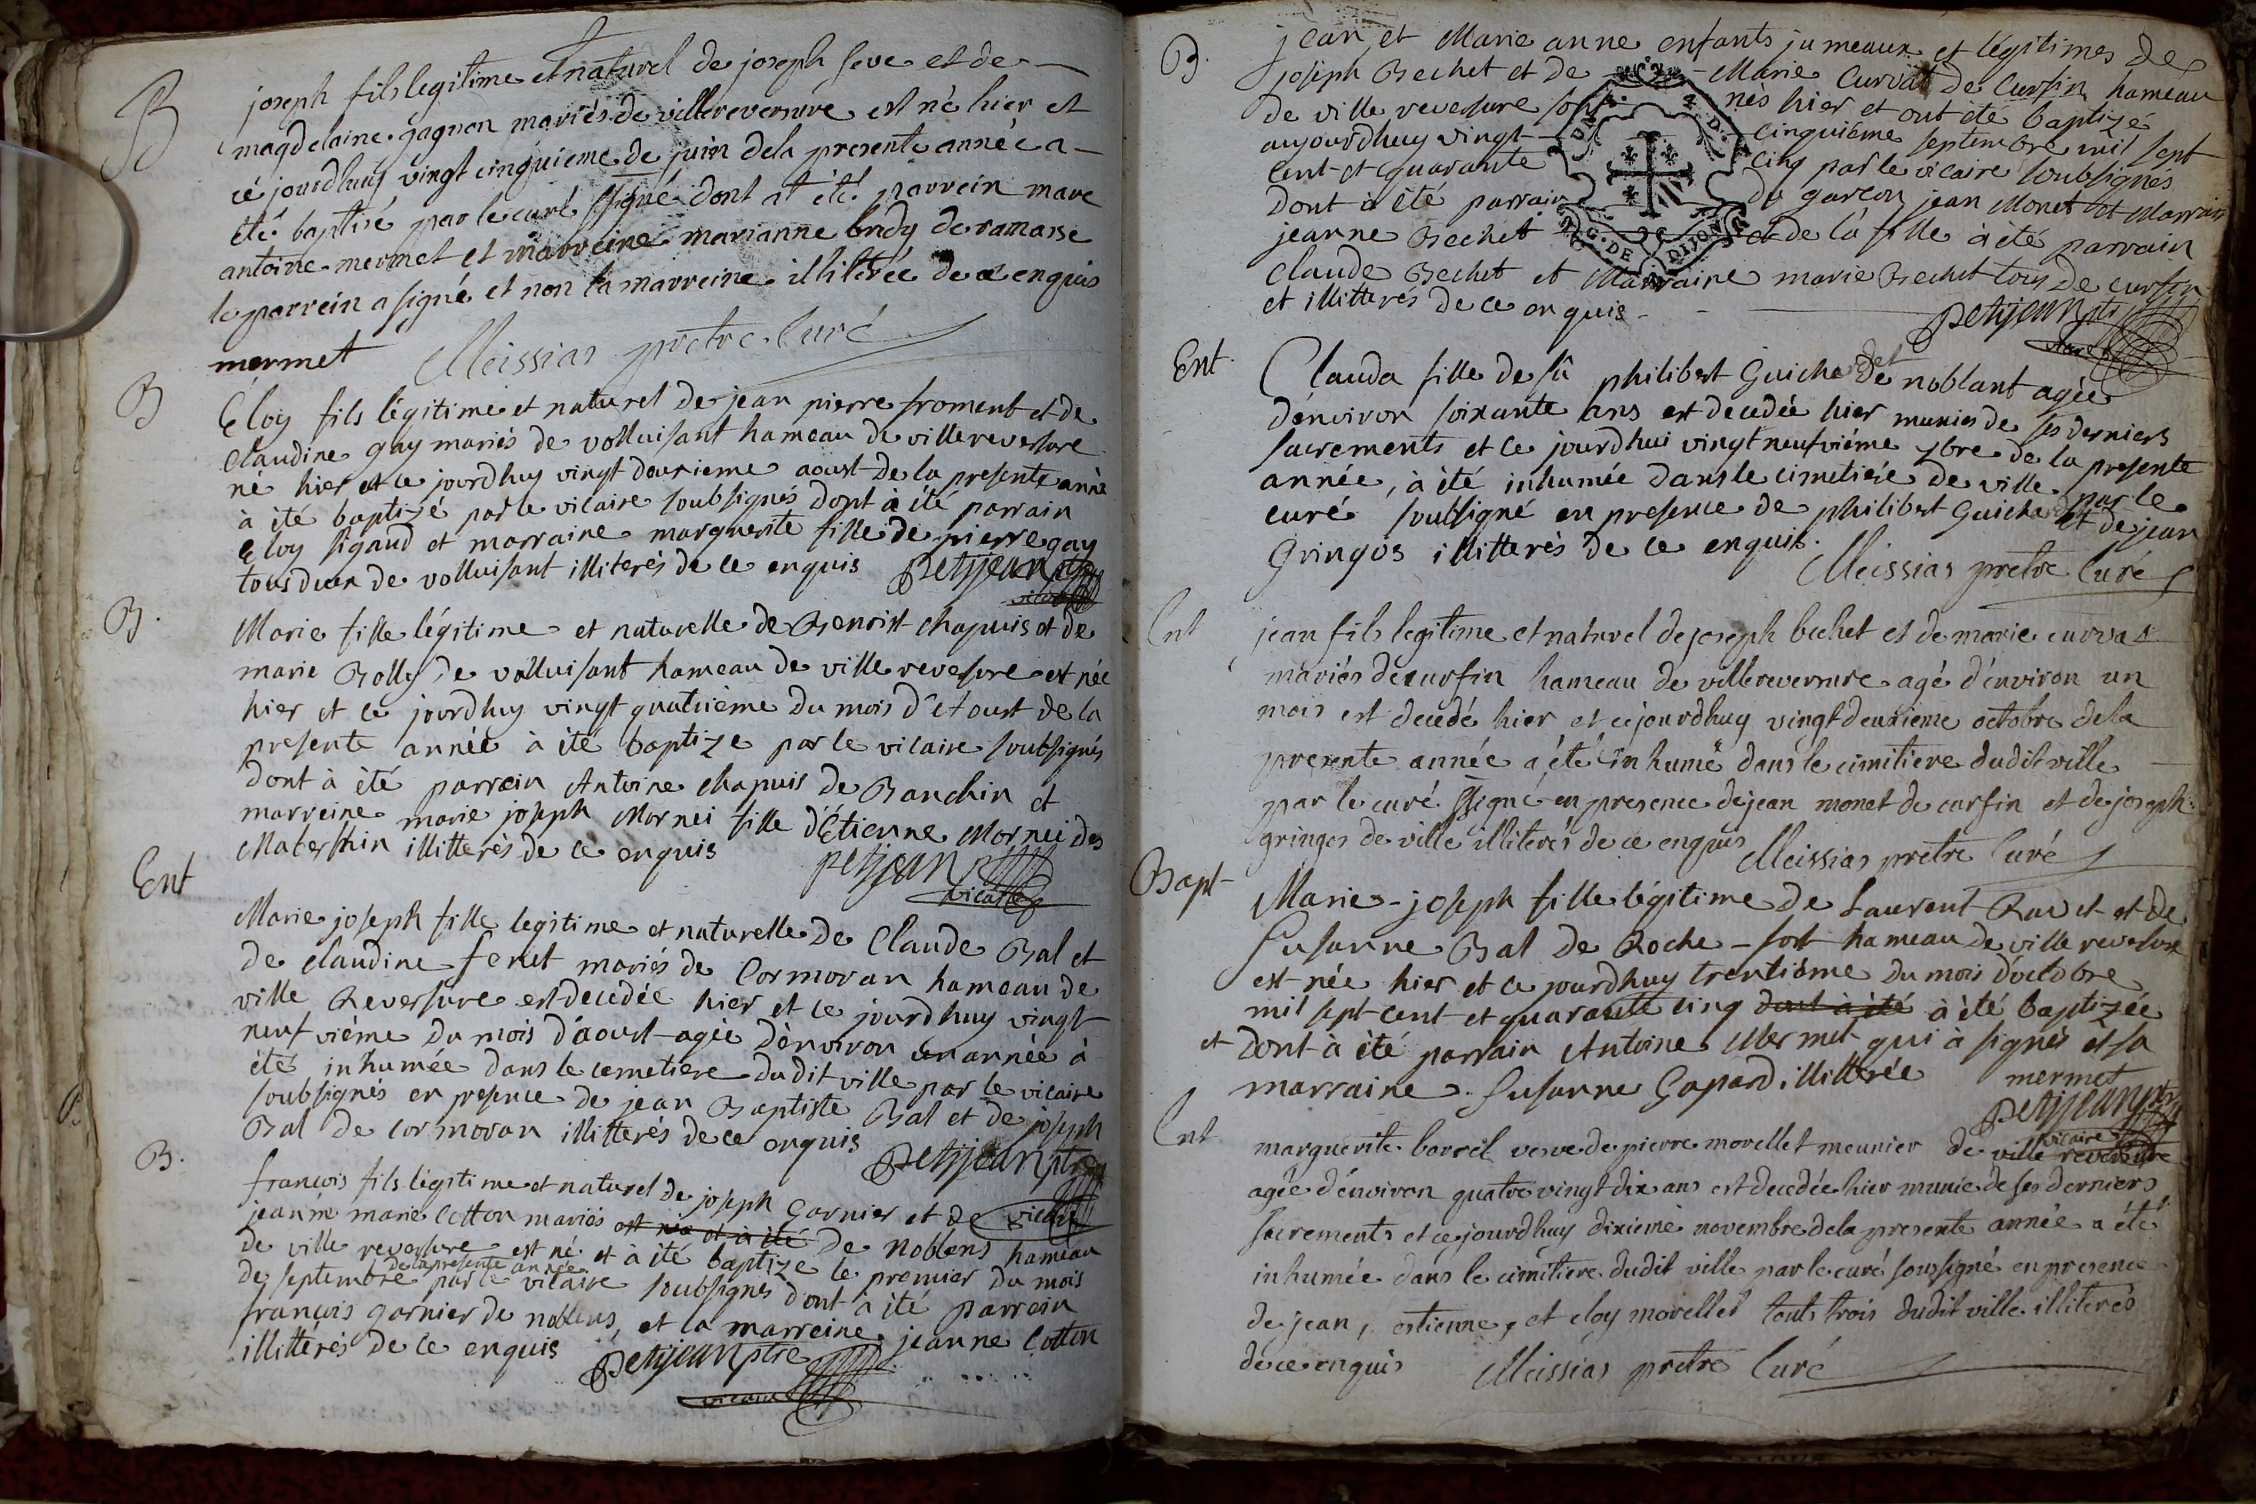 B
joseph fils legitime et naturel de joseph seve et de
magdelaine gagnon mariés de villereversure est né hier et
ce jourdhuy vingt cinquieme de juin dela presente année a
été baptisé par le curé ssigné dont at été parrein marc
antoine mermet et marreine marianne brudy de ramasse
le parrein a signé et non la marreine illiterée de ce enquis
mermet Meissias pretre Curé
B
Eloy fils légitime et naturel de jean pierre froment et de
Claudine gay mariés de volluisant hameau de villereversure
né hier et ce jourdhuy vingt deuxieme aoust de la presente anné
à été baptizé par le vicaire soubsignés dont à été parrain
Eloy sigaud et marraine marguerite fille de pierre gay
tous deux de volluisant illiterés de ce enquis petijean ptre
vicaire
B.
Marie fille légitime et naturelle de Benoist chapuis et de
marie Bolly de volluisant hameau de ville revesure est née
hier et ce jourdhuy vingt quatrième du mois d'étoust de la
presente année à été baptize par le vicaire soubsignés
dont à été parrein Antoine chapuis de Banchin et
marreine marie joseph Mornei fille d'Étienne Mornei des
illitterés de ce enquis petijean
vicaire
Ent
Marie joseph fille legitime et naturelle de Claude Bal et
de claudine feret mariés de Cormoran hameau de
ville Reversure est decedée hier et ce jourdhuy vingt
neuf vième du mois d'aoust agée d'énviron un année à
été inhumée dans le cemetiere dudit ville par le vicaire
soubsignés en presence de jean Baptiste Bal et de joseph
Bal de cormoran illitterés de ce enquis petijean ptre
vicaire
B.
françois fils légitime et naturel de joseph Garnier et de
marie Cotton mariés est né et à été de noblens hameau
de ville reversure est né et à été baptize le premier du mois
de la presente année
de septembre par le vicaire soubsignés dont à été parrein
françois garnier de noblens, et la marreine jeanne Cotton
illitterés de ce enquis petijean ptre
vicaire
B.
jean et Marie anne enfants jumeaux et légitimes de
joseph Bechet et de Marie Curvat de Cursin hameau
de ville revesure sont nés hier et ont été baptizé
aujourdhuy vingt cinquième septembre mil sept
cent et quarante cinq par le vicaire soubsignés
dont à été parrain du garcon jean Monet et Marraine
jeanne Bechet et de la fille à été parrain
Claude Bechet et Marraine marie Bechet tous de cursin
et illitterés de ce enquis petijean ptre
vicaire
G. DE DIJON
Ent.
Clauda fille de fû philibert Guichardet de noblant agée
dénviron soixante ans est decedée hier munies de ses derniers
sacrements et ce jourdhui vingt neufvième 7bre de la presente
année, à été inhumée dans le cimetiére de ville par le
curé soubsigné en presence de philibert Guichardet et de jean
Gringos illitterés de ce enquis. Meissias pretre Curé
Ent
jean fils legitime et naturel de joseph bechet et de marie curvat
mariés de cursin hameau de villereversure agé d'énviron un
mois est decedé hier et cejourdhuy vingt deuxieme octobre dela
presente année a été inhumé dans le cimitiere dudit ville
par le curé ssigné en presence dejean monet de cursin et de joseph
gringos de ville illiterés de ce enquis Meissias pretre Curé
Bapt
Marie-joseph fille légitime de Laurent Ravet et de
Susanne Bal de Roche-fort hameau de ville reversure
est née hier et ce jourdhuy trentième du mois d'octobre
mil sept cent et quarante cinq dont à été à été baptizée
et dont à été parrain Antoine Mermet qui à signés et sa
marraine Susanne Gapard illitterée mermet
petijean ptre
vicaire
Ent
marguerite borrel veuve de pierre morellet meunier de ville reversure
agée d'énviron quatre vingt dix ans est decedée hier munie de ses derniers
sacrements et cejourdhuy dixieme novembre dela presente année a été
inhumée dans le cimitiere dudit ville par le curé soussigné en presence
de jean, estienne, et eloy morellet touts trois dudit ville illiterés
de ce enquis Meissias pretre Curé